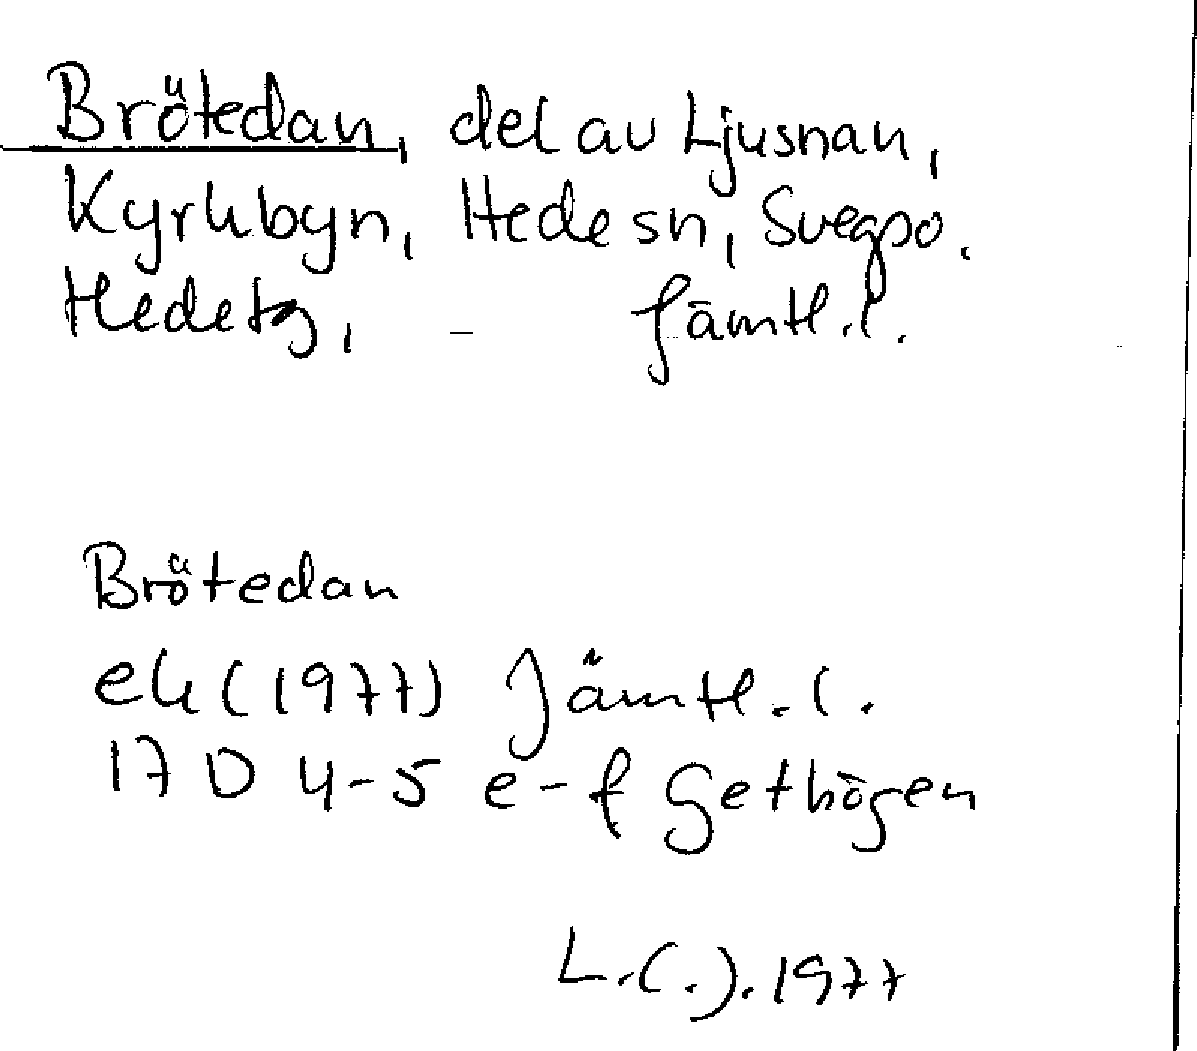 Brötedan, del av Ljusnan,
Kyrkbyn, Hede sn, Svegpo.
Hedetg, - Jämtl. l.
Brötedan
ek (1977) Jämtl. l.
17 D 4-5 e-f Gethögen
1977